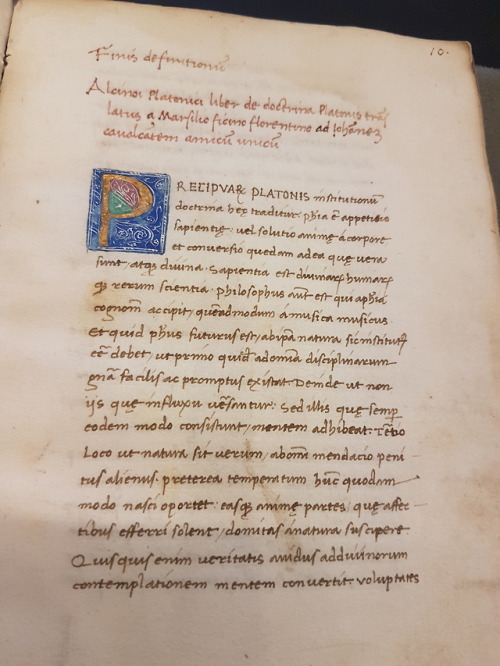 10.
Finis definitionũ
Alcinoi Platonici liber de doctrina Platonis trãs
latus a Marsilio ficino florentino ad Iohãnez
cavalcãtem amicũ unicũ
PRECIPVARꝜ PLATONIS institutionũ
doctrina hęc traditur. phia ẽ appetitio
sapientię. vel solutio animę á corpore
et conversio quedam adea quę vera
sunt, atqꝫ divina. Sapientia est divinarꝝ humarꝝ
qꝫ rerum scientia. Philosophus aũt est qui aphia
cognom̃ accipit, quẽadmodum a musica musicus
Et quid phũs futurus est, abipã natura sic institutꝰ
eẽ debet, ut primo quidẽ adomia disciplinarum
gña facilis ac promptus existat. Deinde ut non
iis quę influxu vẽsantur. Sed illis quę semp̱
eodem modo consistunt, mentem adhibeat. Tẽtio
Loco ut natura sit verum, abomi mendacio peni
tus alienus. preterea temperatum hũc quodam
modo nasci oportet. easqꝫ animę partes, quę affec
tibus efferri solent, domitas ánatura suscipere.
Quisquis enim veritatis avidus addivinorum
contemplationem mentem convertit. voluptates